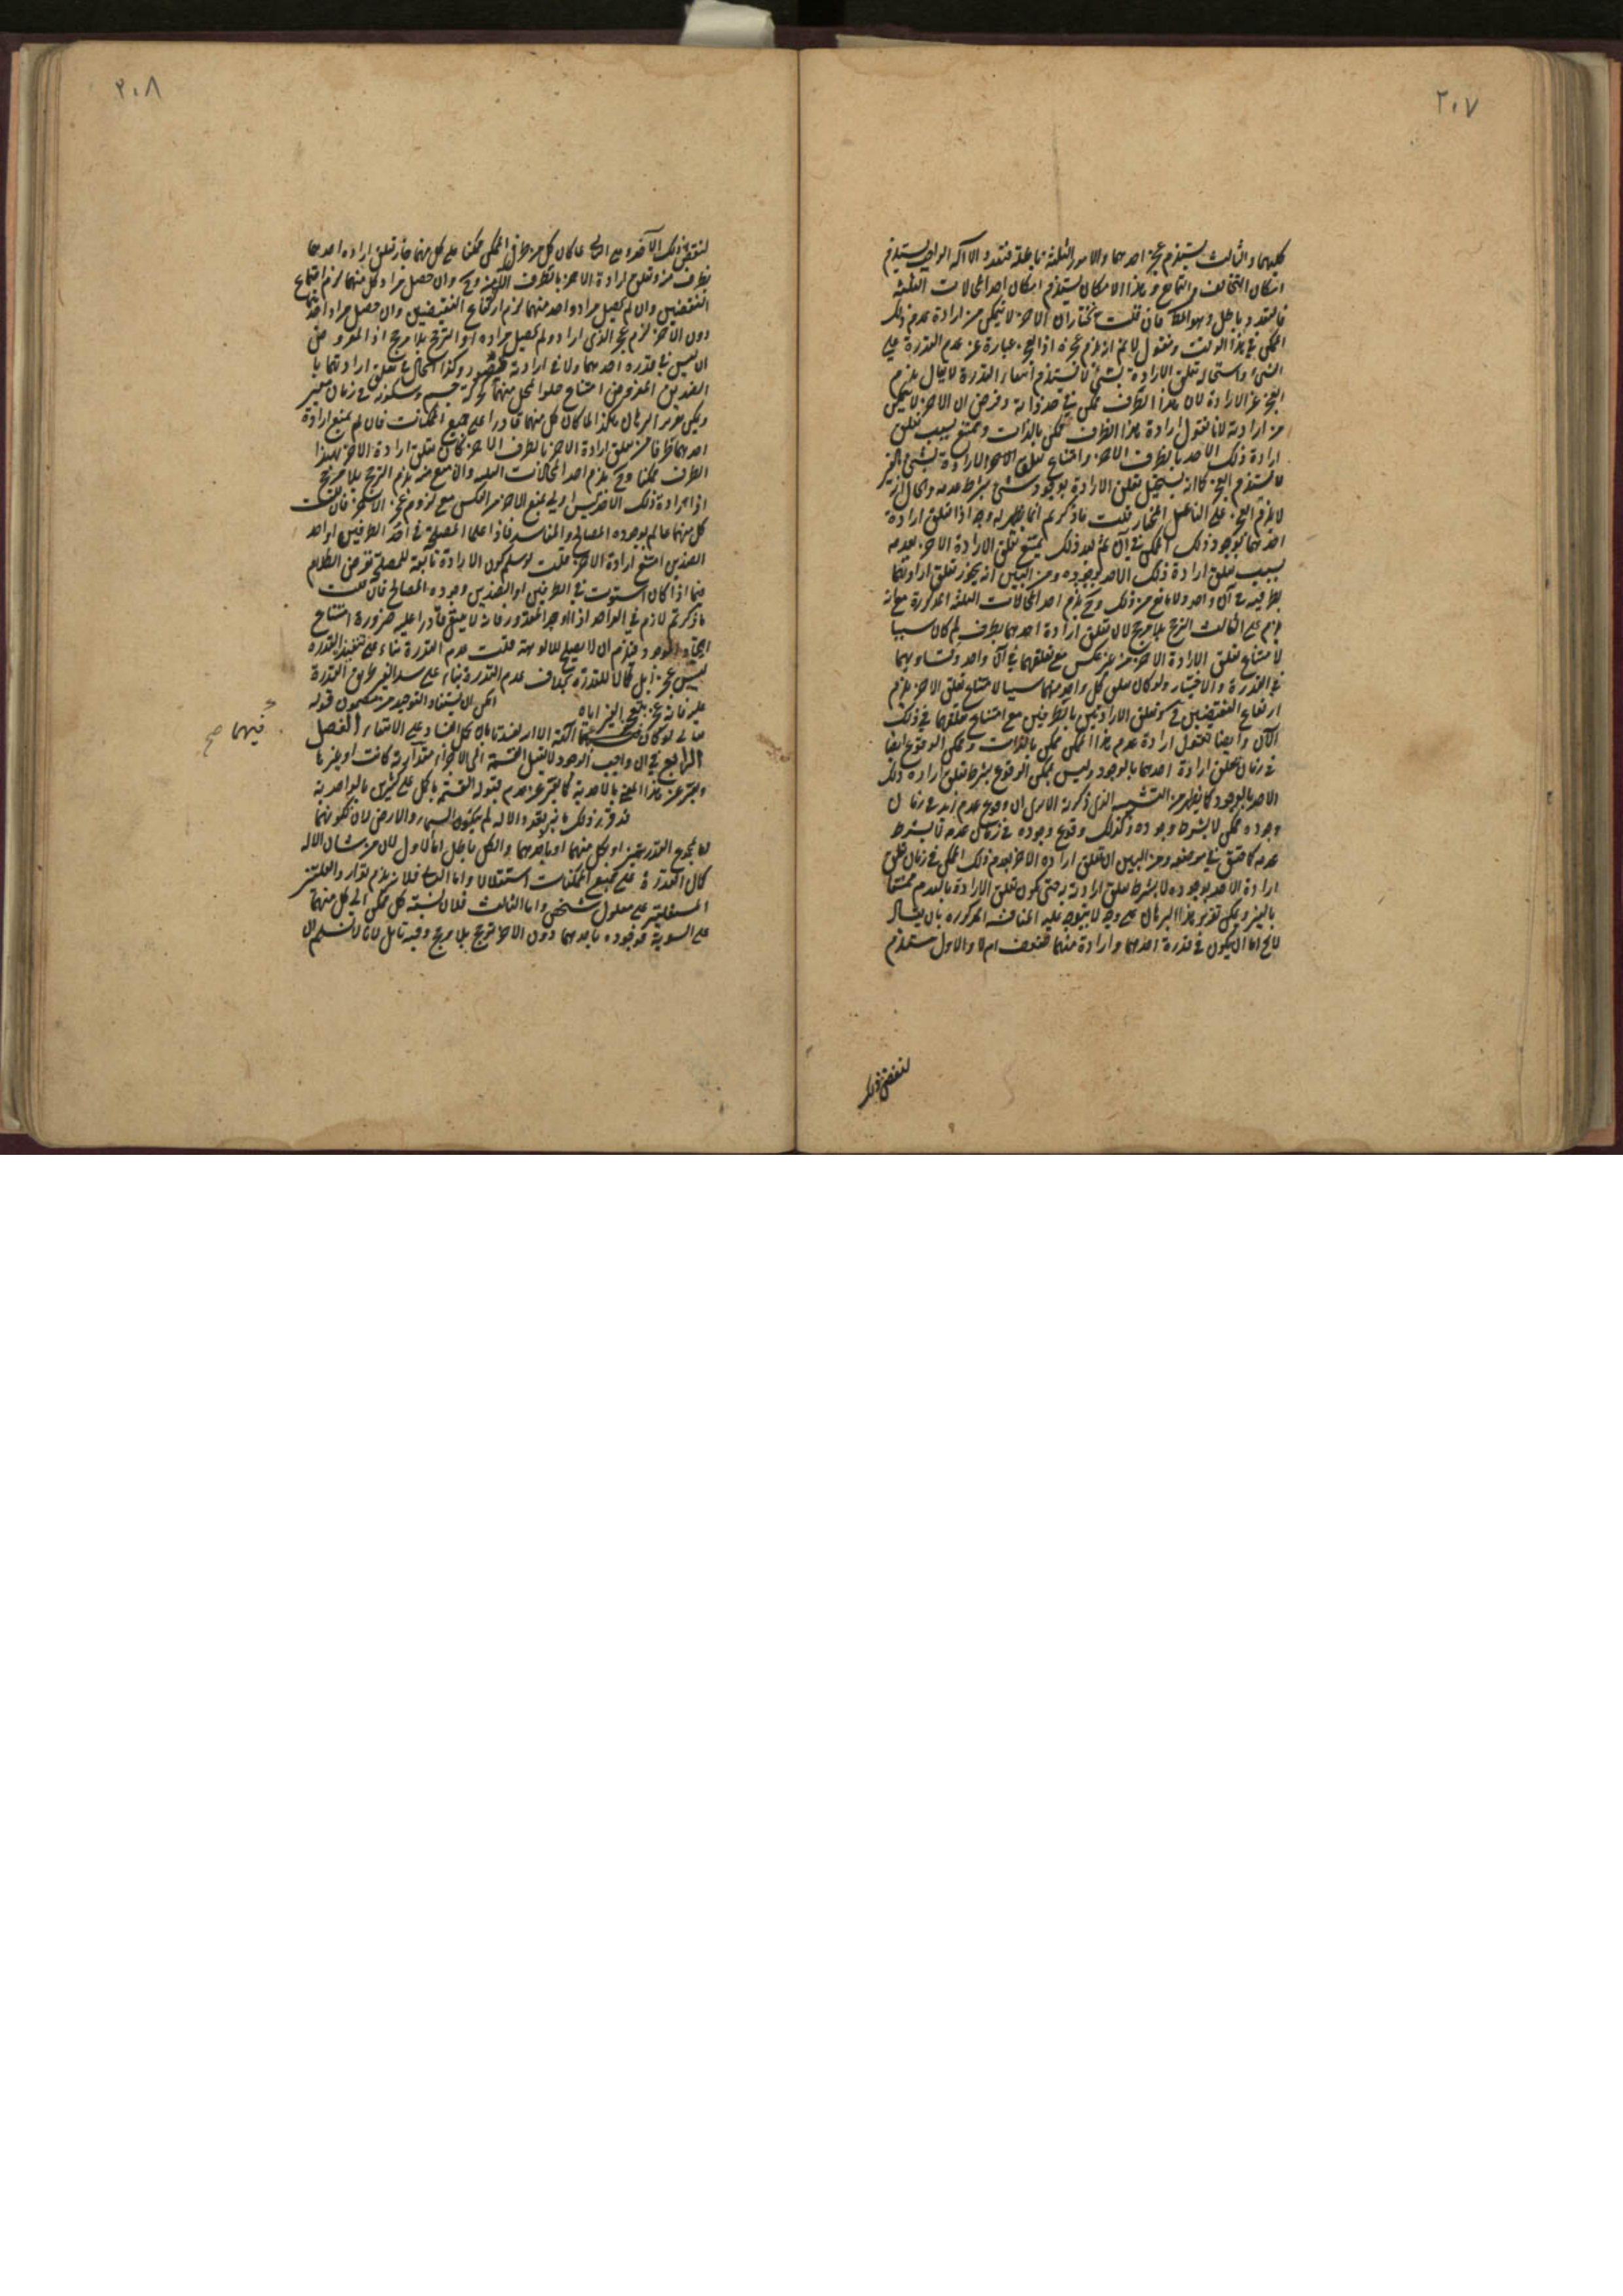 ٢٠٧
كليهما والثالث يستلزم عجز احدهما والامور الثلثة باطلة فتعدد الاله الواجب يستلزم
امكان التخالف والتمانع وهذا الامكان يستلزم امكان احد المحالات الثلثة
فالتعدد باطل وهو المط فان قلت نختار ان الاخر لا يتمكن من ارادة عدم ذلك
الممكن في هذا الوقت ونقول لا نم انه يلزم عجزه اذ العجز عبارة عن عدم القدرة على
الشئ واستحالة تعلق الارادة بشئ لا يستلزم انتفاء القدرة لا يقال يلزم
العجز عن الارادة لان هذا الطرف ممكن في حد ذاته وفرض ان الاخر لا يتمكن
من ارادته لانا نقول ارادة هذا الطرف ممكن بالذات وممتنع بسبب تعلق
ارادة ذلك الاحد بالطرف الاخر وامتناع تعلق الارادة بشئ بالغير
لا يستلزم العجز كما انه يستحيل تعلق الارادة بوجود شئ بشرط عدمه والحال انه
لا يلزم العجز على الفاعل المختار قلت ما ذكرتم انما يظهر له وجه اذا تعلق ارادة
احدهما بوجود ذلك الممكن في آن ثم بعد ذلك يمتنع تعلق الارادة الاخر بعدمه
بسبب تعلق ارادة ذلك الاحد بوجوده ومن البين انه يجوز تعلق ارادتهما
بطرفيه في آن واحد ولا مانع من ذلك وح يلزم احد المحالات الثلثة المذكورة مع انه
يلزم على الثالث الترجح بلا مرجح لان تعلق ارادة احدهما بطرف لم كان سببا
لامتناع تعلق الارادة الاخر من غير عكس مع تعلقهما في آن واحد وتساويهما
في القدرة والاختيار ولو كان تعلق كل واحد منهما سببا لامتناع تعلق الاخر يلزم
ارتفاع النقيضين في تعلق الارادتين بالطرفين مع امتناع تعلقهما في ذلك
الآن وايضا نقول ارادة عدم هذا الممكن ممكن بالذات وممكن الوقوع ايضا
في زمان تعلق ارادة احدهما بالوجود وليس بممكن الوقوع بشرط تعلق ارادة ذلك
الاحد بالوجود كما يظهر من التشبيه الذي ذكرته الا يرى ان وقوع عدم زيد في زمان
وجوده ممكن لا بشرط وجوده وكذلك وقوع وجوده في زمان عدمه لا بشرط
عدمه كما حقق في موضعه ومن البين ان تعلق ارادة الاخر بعدم ذلك الممكن في زمان تعلق
ارادة الاحد بوجوده لا بشرط تعلق ارادته حتى يكون تعلق الارادة بالعدم ممتنعا
بالغير ويمكن تقرير هذا البرهان على وجه لا يتوجه عليه المناقشة المذكورة بان يقال
لا يخ اما ان يكون في قدرة احدهما وارادة منهما ضعف ام لا والاول يستلزم
لنقص ذلك
٢٠٨
لنقص ذلك الآخر وعلى الثاني لما كان كل من طرفي الممكن ممكنا على كل منهما جاز تعلق ارادة احدهما
بطرف منه وتعلق ارادة الاخر بالطرف الآخر منه وح وان حصل مراد كل منهما لزم اجتماع
النقيضين وان لم يحصل مراد واحد منهما لزم ارتفاع النقيضين وان حصل مراد احدهما
دون الاخر لزم عجز الذي اراد ولم يحصل مراده او الترجح بلا مرجح اذ المفروض
ان ليس في قدرة احدهما ولا في ارادته قصور وكذا الحال في تعلق ارادتهما با
الضدين المفروض امتناع خلو المحل منهما كحركة جسم وسكونه في زمان معين
ويمكن تقرير البرهان هكذا لما كان كل منهما قادرا على جميع الممكنات فان لم يمتنع ارادة
احدهما بطرف تعلق ارادة الاخر بالطرف الاخر كان تعلق ارادة الاخر بهذا
الطرف ممكنا وح يلزم احد المحالات الثلثة وان امتنع منه يلزم الترجح بلا مرجح
اذ ارادة ذلك الاخر ليس اولى بمنع الاخر من العكس مع لزوم عجز الاخر فان قلت
كل منهما عالم بوجوده المصالح والمفاسد فاذا علما المصلحة في احد الطرفين او احد
الضدين امتنع ارادة الاخر قلت لو سلم كون الارادة تابعة للمصلحة نفرض الكلام
فيما اذا كان استوت في الطرفين او الضدين وجوه المصالح فان قلت
ما ذكرتم لازم في الواحد اذا اوجد المقدور فانه لا يبقى قادرا عليه ضرورة امتناع
ايجاد الموجود فيلزم ان لا يصلح للالوهية قلت عدم القدرة بناء على تنفيذ القدرة
ليس عجزا بل كمالا للقدرة بخلاف عدم القدرة بناء على سد الغير طريق القدرة
عليه فانه عجز بتعجيز الغير اياه
الحق ان يستفاد التوحيد من مضمون قوله
تعالى لو كان فيهما آلهة الا الله لفسدتا فان كل الفساد على الانتفاء الفصل
فيهما صح
الرابع في ان واجب الوجود لا يقبل القسمة الى الاجزاء مقدارية كانت او غيرها
ويعبر عن هذا المعنى بالاحدية كما يعبر عن عدم قبوله القسمة بالكل على كثيرين بالواحدية
قد قرر ذلك بانه لو تعدد الاله لم يتكون السماء والارض لان تكونهما
اما بمجموع القدرتين او بكل منهما او باحدهما والكل باطل اما الاول لان من شان الاله
كمال القدرة على جميع الممكنات استقلالا واما الثاني فلانه يلزم توارد العلتين
المستقلتين على معلول شخصي واما الثالث فلان نسبة كل ممكن الى كل منهما
على السوية فوجوده باحدهما دون الاخر ترجح بلا مرجح وفيه تامل لانا لا نسلم ان